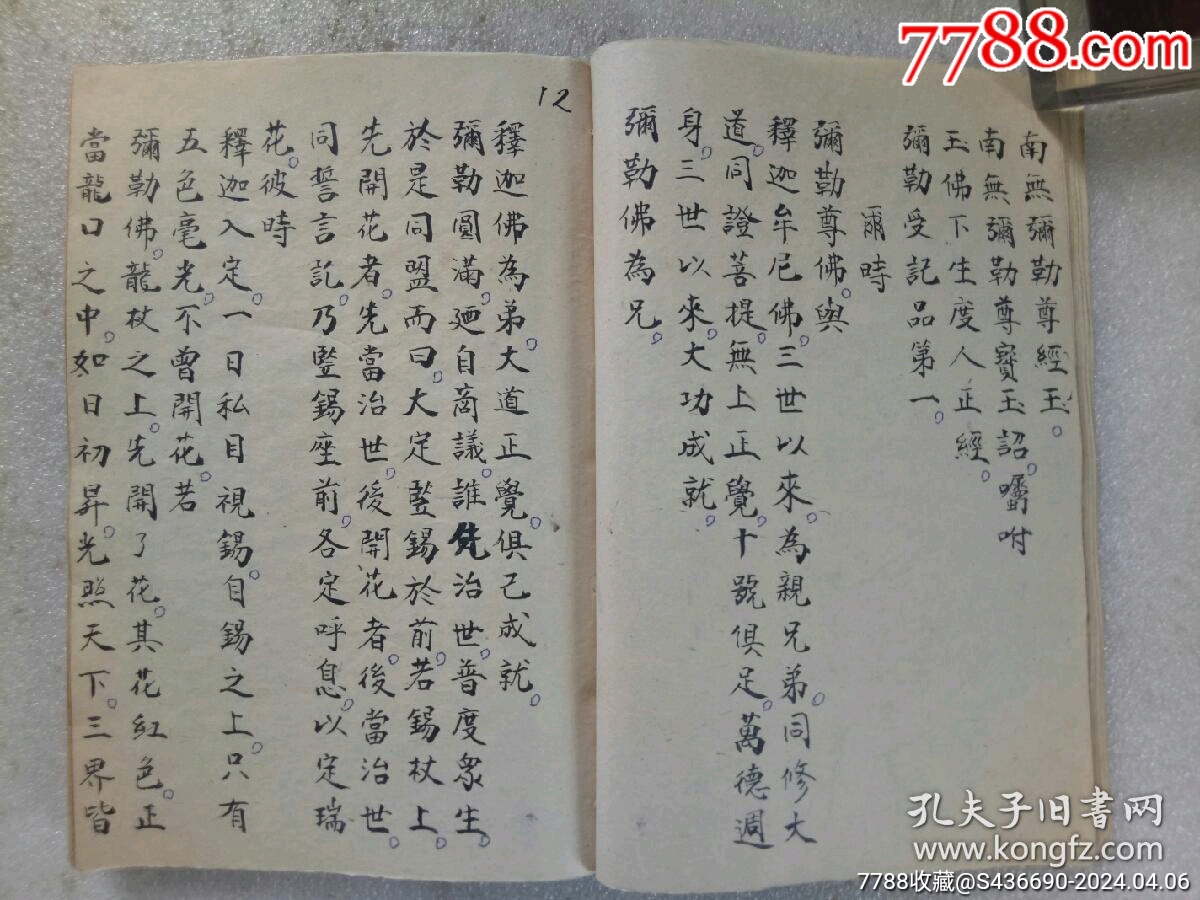 7788.com
南無彌勒尊經玉。
南無彌勒尊寶玉詔。囑咐
玉佛下生度人正經。
彌勒受記品第一。
爾時
彌勒尊佛。與
釋迦牟尼佛。三世以來。為親兄弟。同修大
道。同證菩提。無上正覺。十號俱足。萬德週
身。三世以來。大功成就。
彌勒佛為兄。
12
釋迦佛為弟。大道正覺。俱已成就。
彌勒圓滿。廼自商議。誰先治世。普度眾生。
於是同盟而曰。大定竪錫於前。若錫杖上。
先開花者。先當治世。後開花者。後當治世。
同誓言訖。乃竪錫座前。各定呼息。以定瑞
花。彼時
釋迦入定。一日私目視錫。自錫之上。只有
五色毫光。不曾開花。若
彌勒佛。龍杖之上。先開了花。其花紅色。正
當龍口之中。如日初昇。光照天下。三界皆
孔夫子旧書网
www.kongfz.com
7788收藏@S436690-2024.04.06